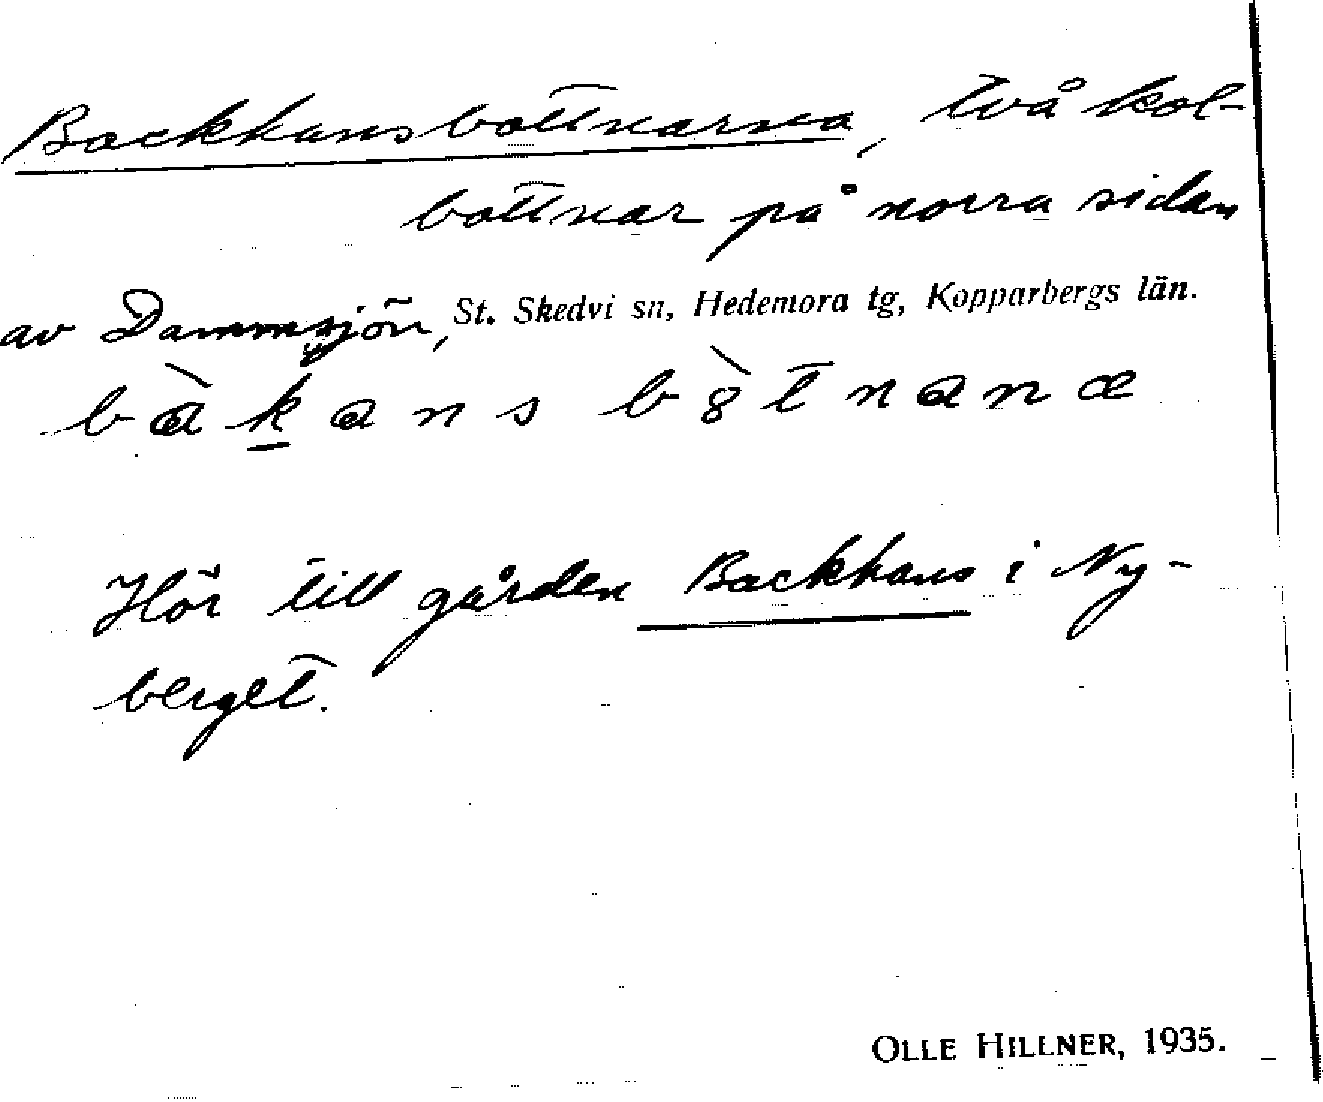 Backhansbottnarna, två kol-
bottnar på norra sidan
av Dammsjön, St. Skedvi sn, Hedemora tg, Kopparbergs län.
bàkans bò̀tnanæ
Hör till gården Backhans i Ny-
berget.
OLLE HILLNER, 1935.